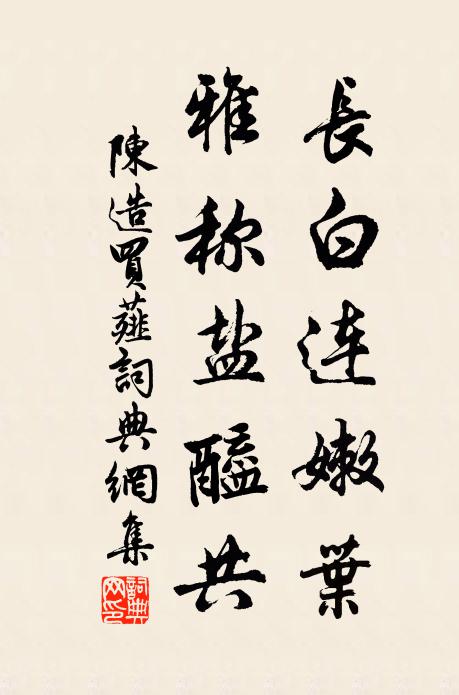 長白连嫩葉
雅称盐醯共
陳造買薤詞典網集
詞典網印